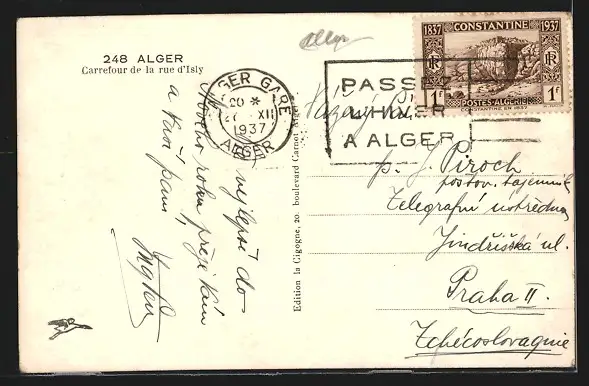 248 ALGER
Carrefour de la rue d'Isly
Alger
ALGER GARE
20 *
27 XII
1937
ALGER
PASSEZ
L'HIVER
A ALGER
1837 CONSTANTINE 1937
RF
1F POSTES-ALGERIE 1F
CONSTANTINE EN 1837
Vážený Pan
p. J. Piroch
postov. tajemník
Telegrafní ústředna
Jindřišská ul.
Praha II.
Tchécoslovaquie
Edition la Cigogne, 20. boulevard Carnot Alger
nejlepší do
Nového roku přeje Vám
a Vaší paní